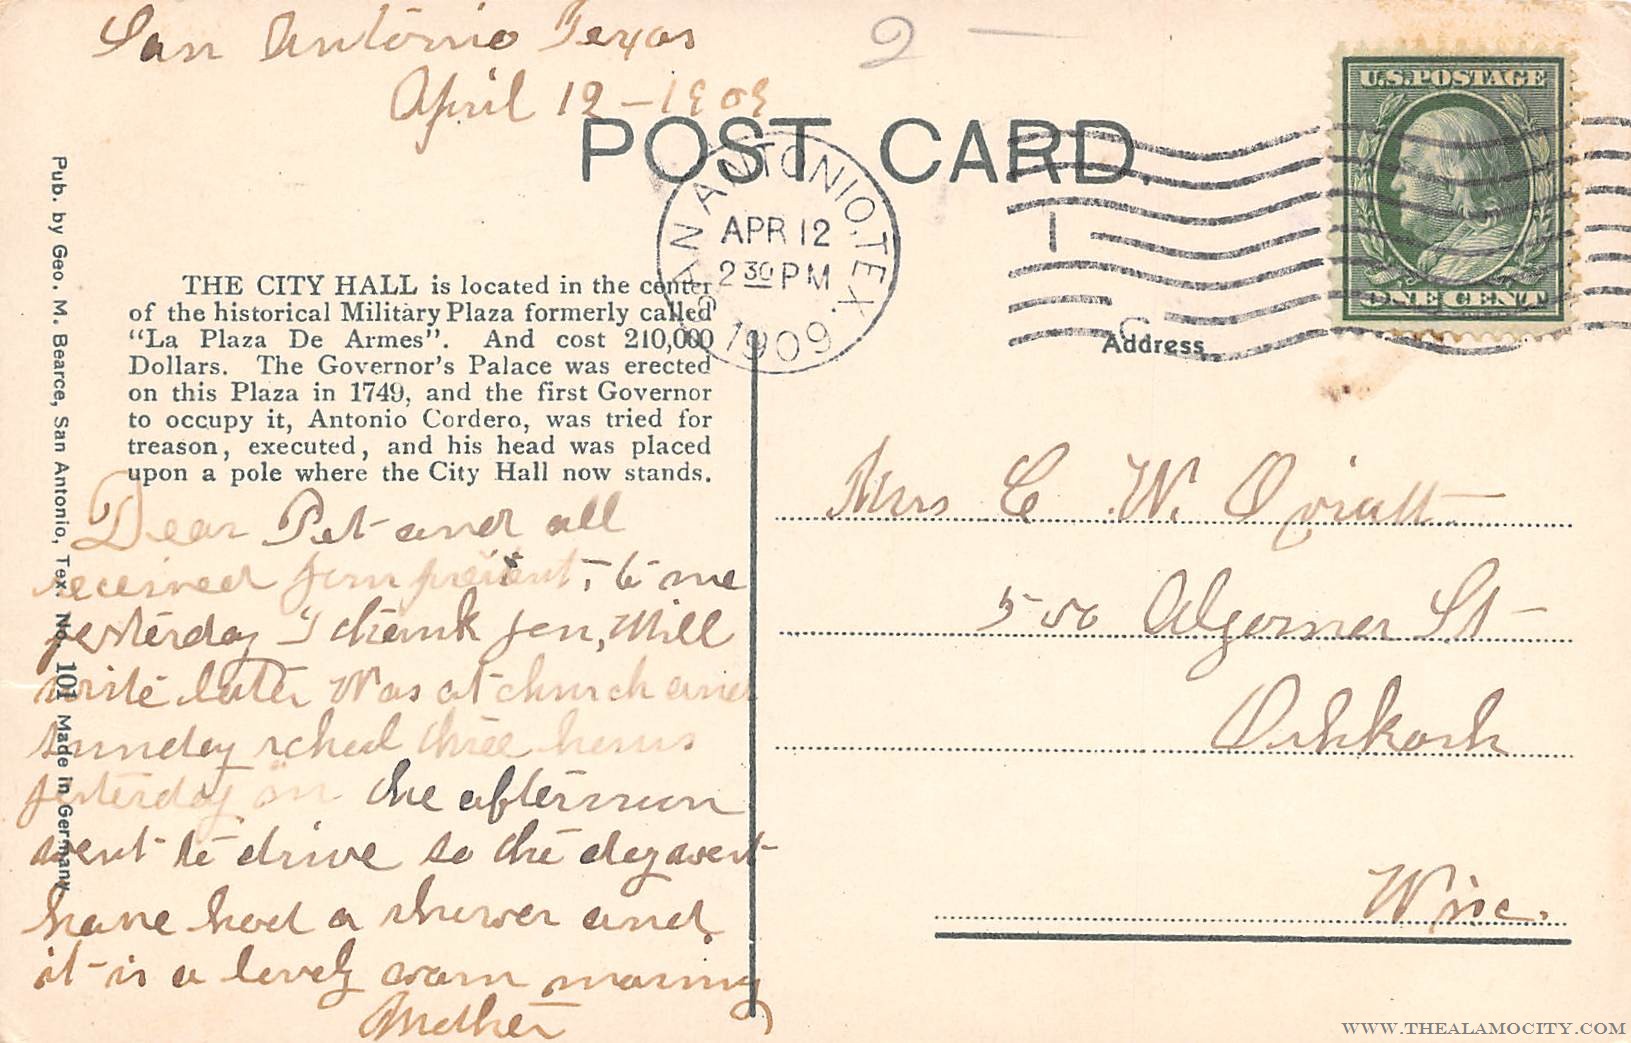 San Antonio Texas
April 12 - 1909
2 -
U.S. POSTAGE
ONE CENT
POST CARD.
SAN ANTONIO, TEX.
APR 12
2 30 PM
1909
1
Address
THE CITY HALL is located in the center
of the historical Military Plaza formerly called
"La Plaza De Armes". And cost 210,000
Dollars. The Governor's Palace was erected
on this Plaza in 1749, and the first Governor
to occupy it, Antonio Cordero, was tried for
treason, executed, and his head was placed
upon a pole where the City Hall now stands.
Pub. by Geo. M. Bearce, San Antonio, Tex. No. 101 Made in Germany
Dear Pet and all
received your present, to me
yesterday I thank you, Will
write later Was at church and
sunday school three hours
yesterday in the afternoon
went to drive so the day went
have had a shower and
it is a lovely warm morning
Mother
Mrs C. W. Oviatt
500 Algomer St
Oshkosh
Wisc.
WWW.THEALAMOCITY.COM